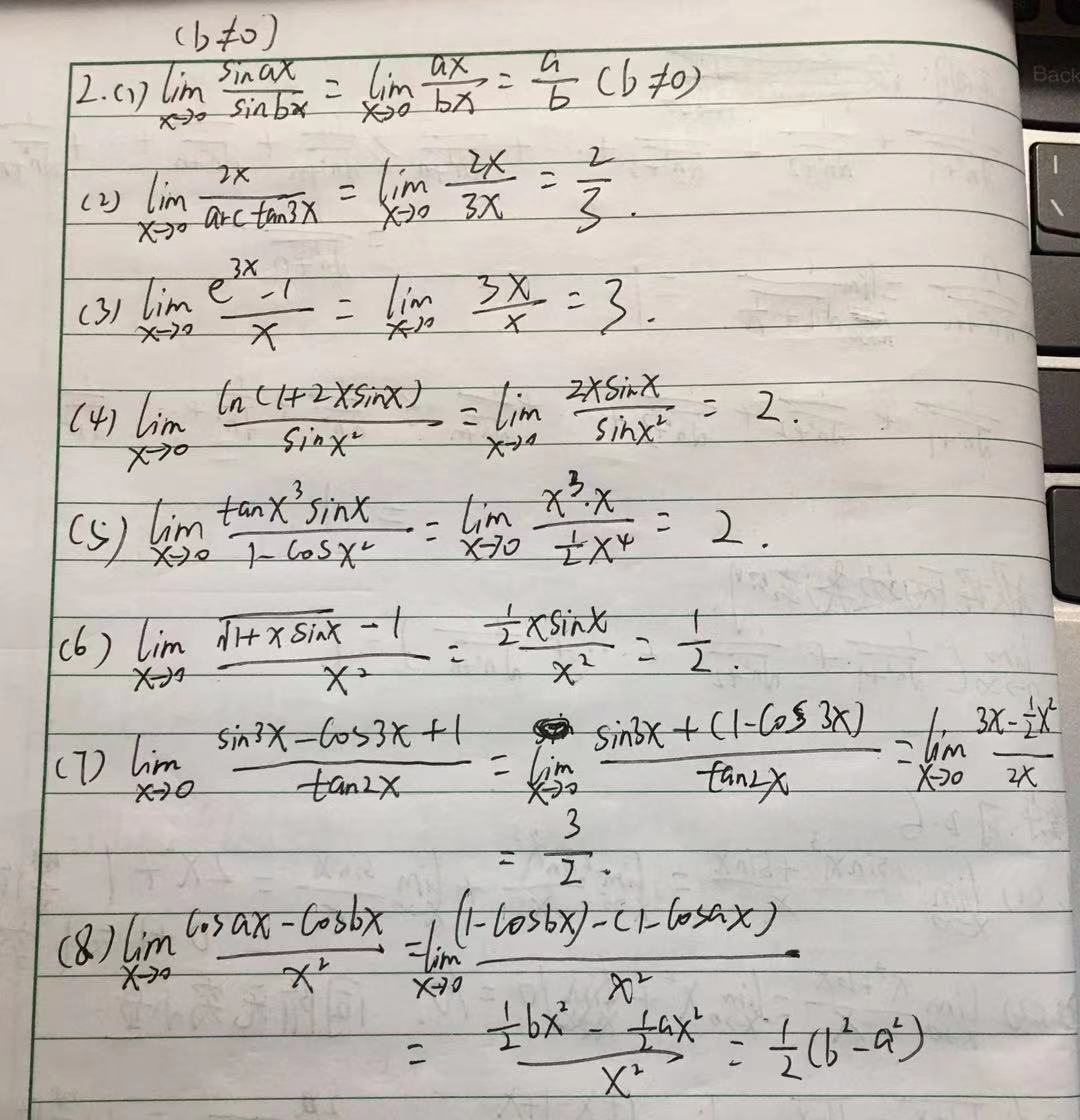 (b≠0)
2.(1) lim_{x→0} sin ax / sin bx = lim_{x→0} ax / bx = a/b (b≠0)
(2) lim_{x→0} 2x / arc tan3x = lim_{x→0} 2x / 3x = 2/3.
(3) lim_{x→0} (e^{3x} -1) / x = lim_{x→0} 3x / x = 3.
(4) lim_{x→0} ln(1+2xsinx) / sinx² = lim_{x→0} 2xsinx / sinx² = 2.
(5) lim_{x→0} tanx³sinx / (1-cosx²) = lim_{x→0} x³·x / (½x⁴) = 2.
(6) lim_{x→0} (√(1+xsinx) -1) / x² = ½xsinx / x² = 1/2.
(7) lim_{x→0} (sin3x-cos3x+1) / tan2x = lim_{x→0} (sin3x+(1-cos3x)) / tan2x = lim_{x→0} (3x-½x²) / 2x
= 3/2.
(8) lim_{x→0} (cosax-cosbx) / x² = lim_{x→0} ((1-cosbx)-(1-cosax)) / x²
= (½bx² - ½ax²) / x² = ½(b²-a²)